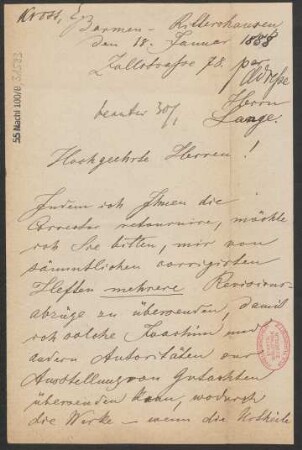 Kross, E.
Barmen - Rittershausen
den 18. Januar 1888
Zollstrasse 78. per
Adresse
Herrn
beantw 30/1 Lange.
Hochgeehrte Herren!
Indem ich Ihnen die
retournire, möchte
ich Sie bitten, mir von
sämmtlichen corrigirten
Heften mehrere Revisions-
abzüge zu übersenden, damit
ich solche und
andern Autoritäten zur
Ausstellung von Gutachten
übersenden kann, wodurch
die Werke - wenn die Urtheile
55 Nachl 100/B